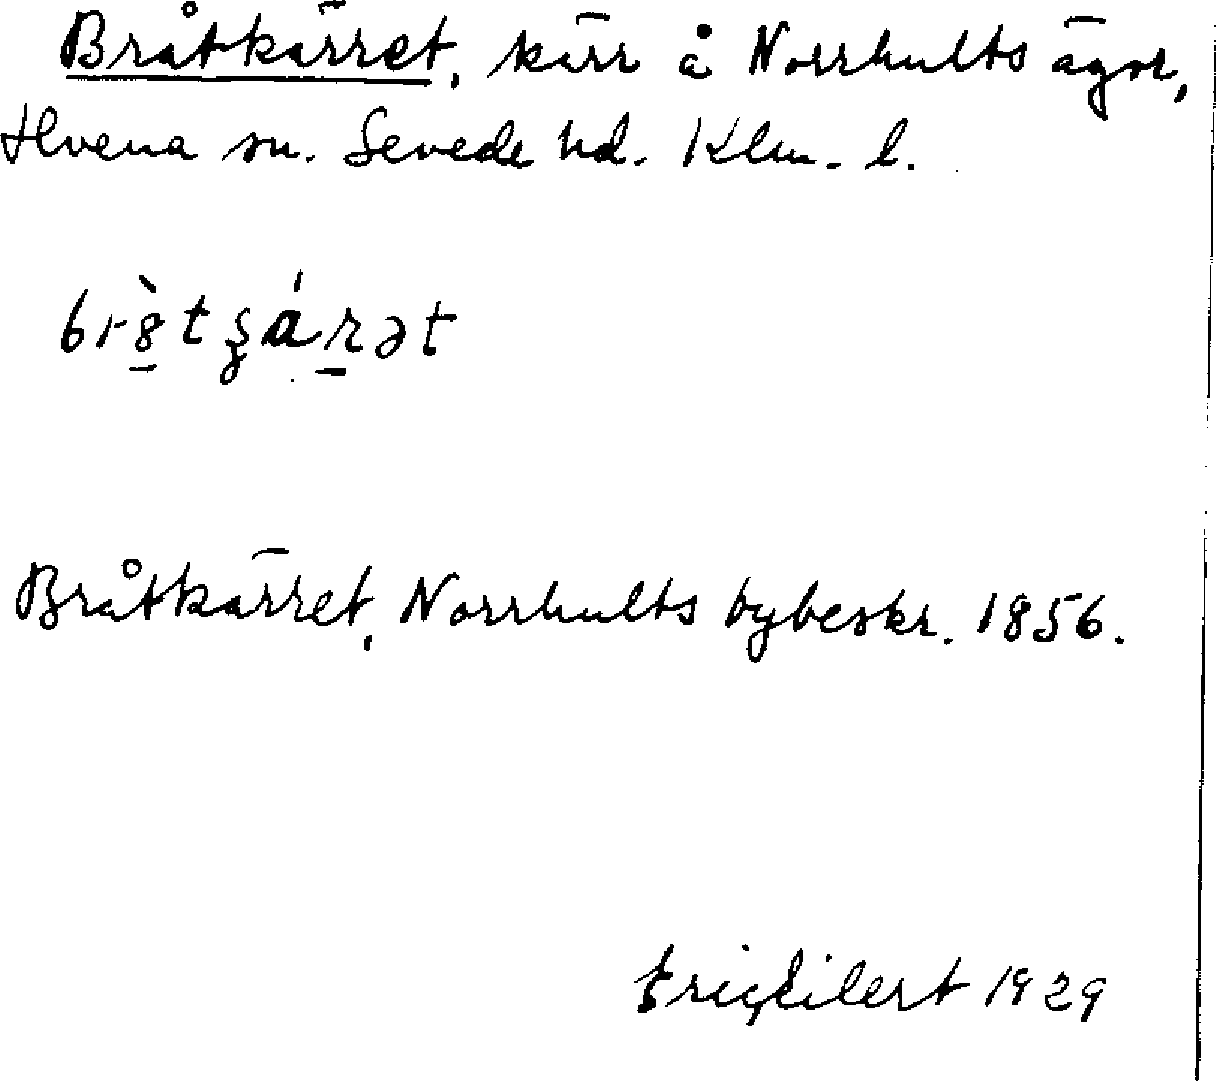 Bråtkärret, kärr å Norrhults ägor,
Hvena sn. Sevede hd. Klm. l.
Bråtkärret, Norrhults bybeskr. 1856.
Eric Eilert 1929